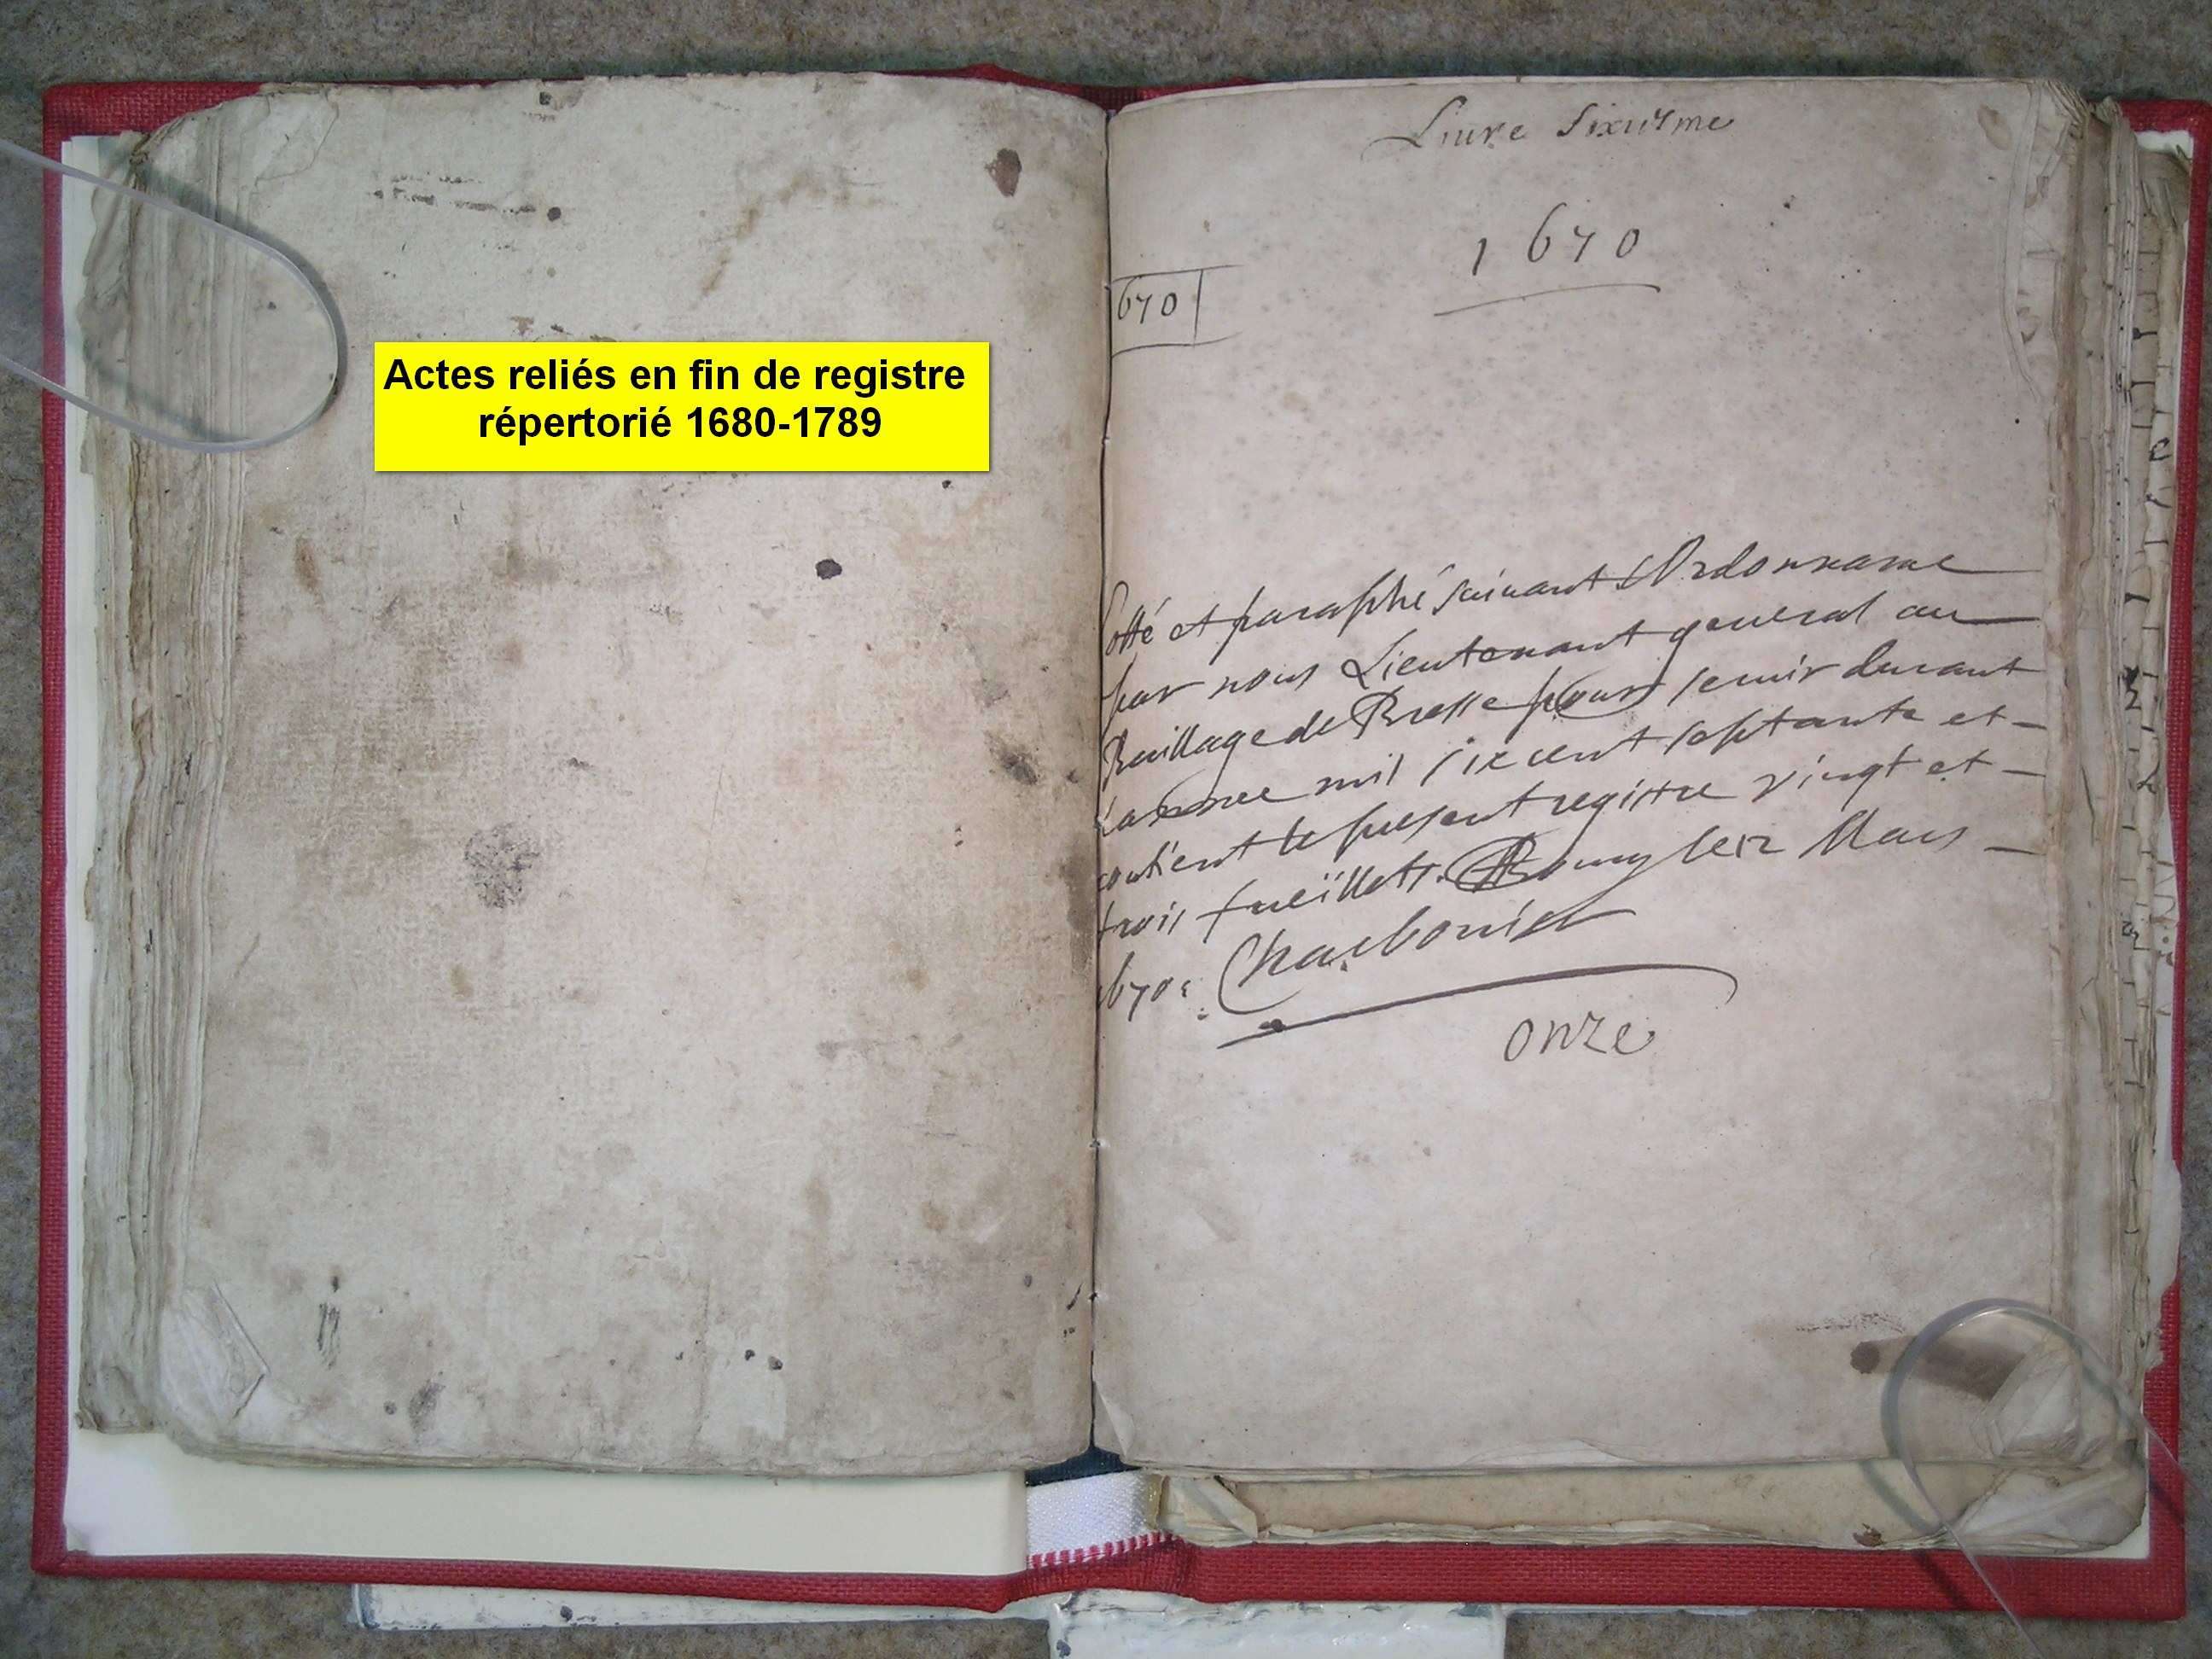 Actes reliés en fin de registre
répertorié 1680-1789
Liure Sixiesme
1670
670
Cotté et paraphé suiuant l'Ordonnance
par nous Lieutenant general au
Baillage de Bresse pour seruir durant
L'année mil six cent septante et
contient le present registre vingt et
trois fueïllets. A Bourg le 12 Mars
1670. Charbonier
onze